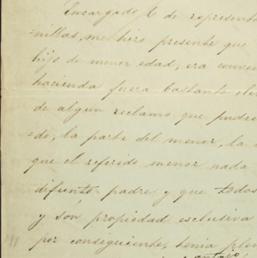 Encargado de represent
me hizo presente que
hijo de menor edad, era conven
hacienda fuera bastante
de algun reclamo que pudie
la parte del menor, la
que el referido menor nada
difunto padre y que todas
y són propiedad esclusiva
por consiguiente, tenia ple